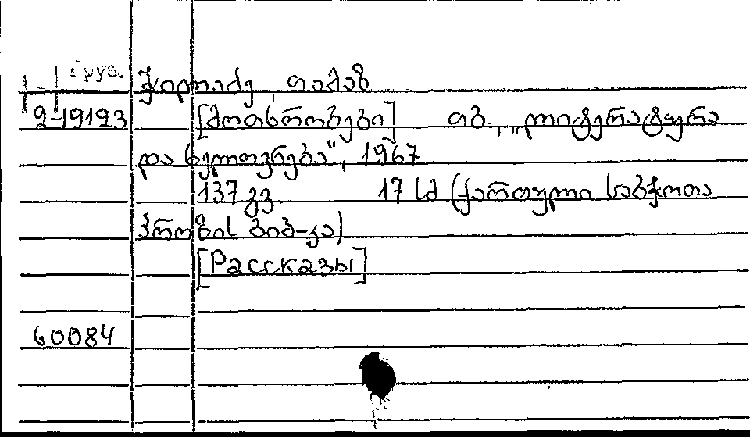 Груз.
ჭილაძე, თამაზ
2-19123 [მოთხრობები] თბ., „ლიტერატურა
და ხელოვნება“, 1967
137 გვ. 17 სმ (ქართული საბჭოთა
პროზის ბიბ-კა)
[Рассказы]
60084